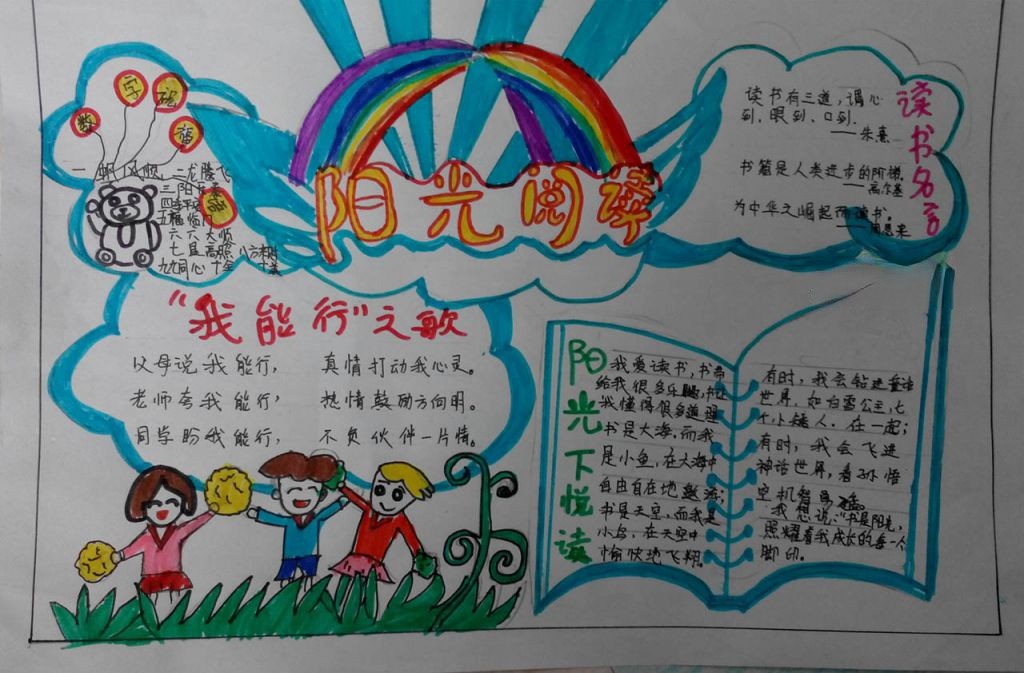 数字祝福
一帆风顺 二龙腾飞
三阳开泰
四季平安
五福临门
六六大顺
七星高照 八方来财
九九同心 十全十美
阳光阅读
读书名言
读书有三道,谓心
到、眼到、口到.
——朱熹
书籍是人类进步的阶梯
——高尔基
为中华之崛起而读书.
——周恩来
“我能行”之歌
父母说我能行, 真情打动我心灵。
老师夸我能行, 热情鼓励方向明。
同学盼我能行, 不负伙伴一片情。
阳光下悦读
我爱读书,书带
给我很多乐趣,书让
我懂得很多道理
书是大海,而我
是小鱼,在大海中
自由自在地遨游;
书是天空,而我是
小鸟,在天空中
愉快地飞翔。
有时,我会钻进童话
世界,如白雪公主,七
个小矮人.住一起;
有时,我会飞进
神话世界,看孙悟
空机智勇
我想说:“书是阳光,
照耀着我成长的每一个
脚印。